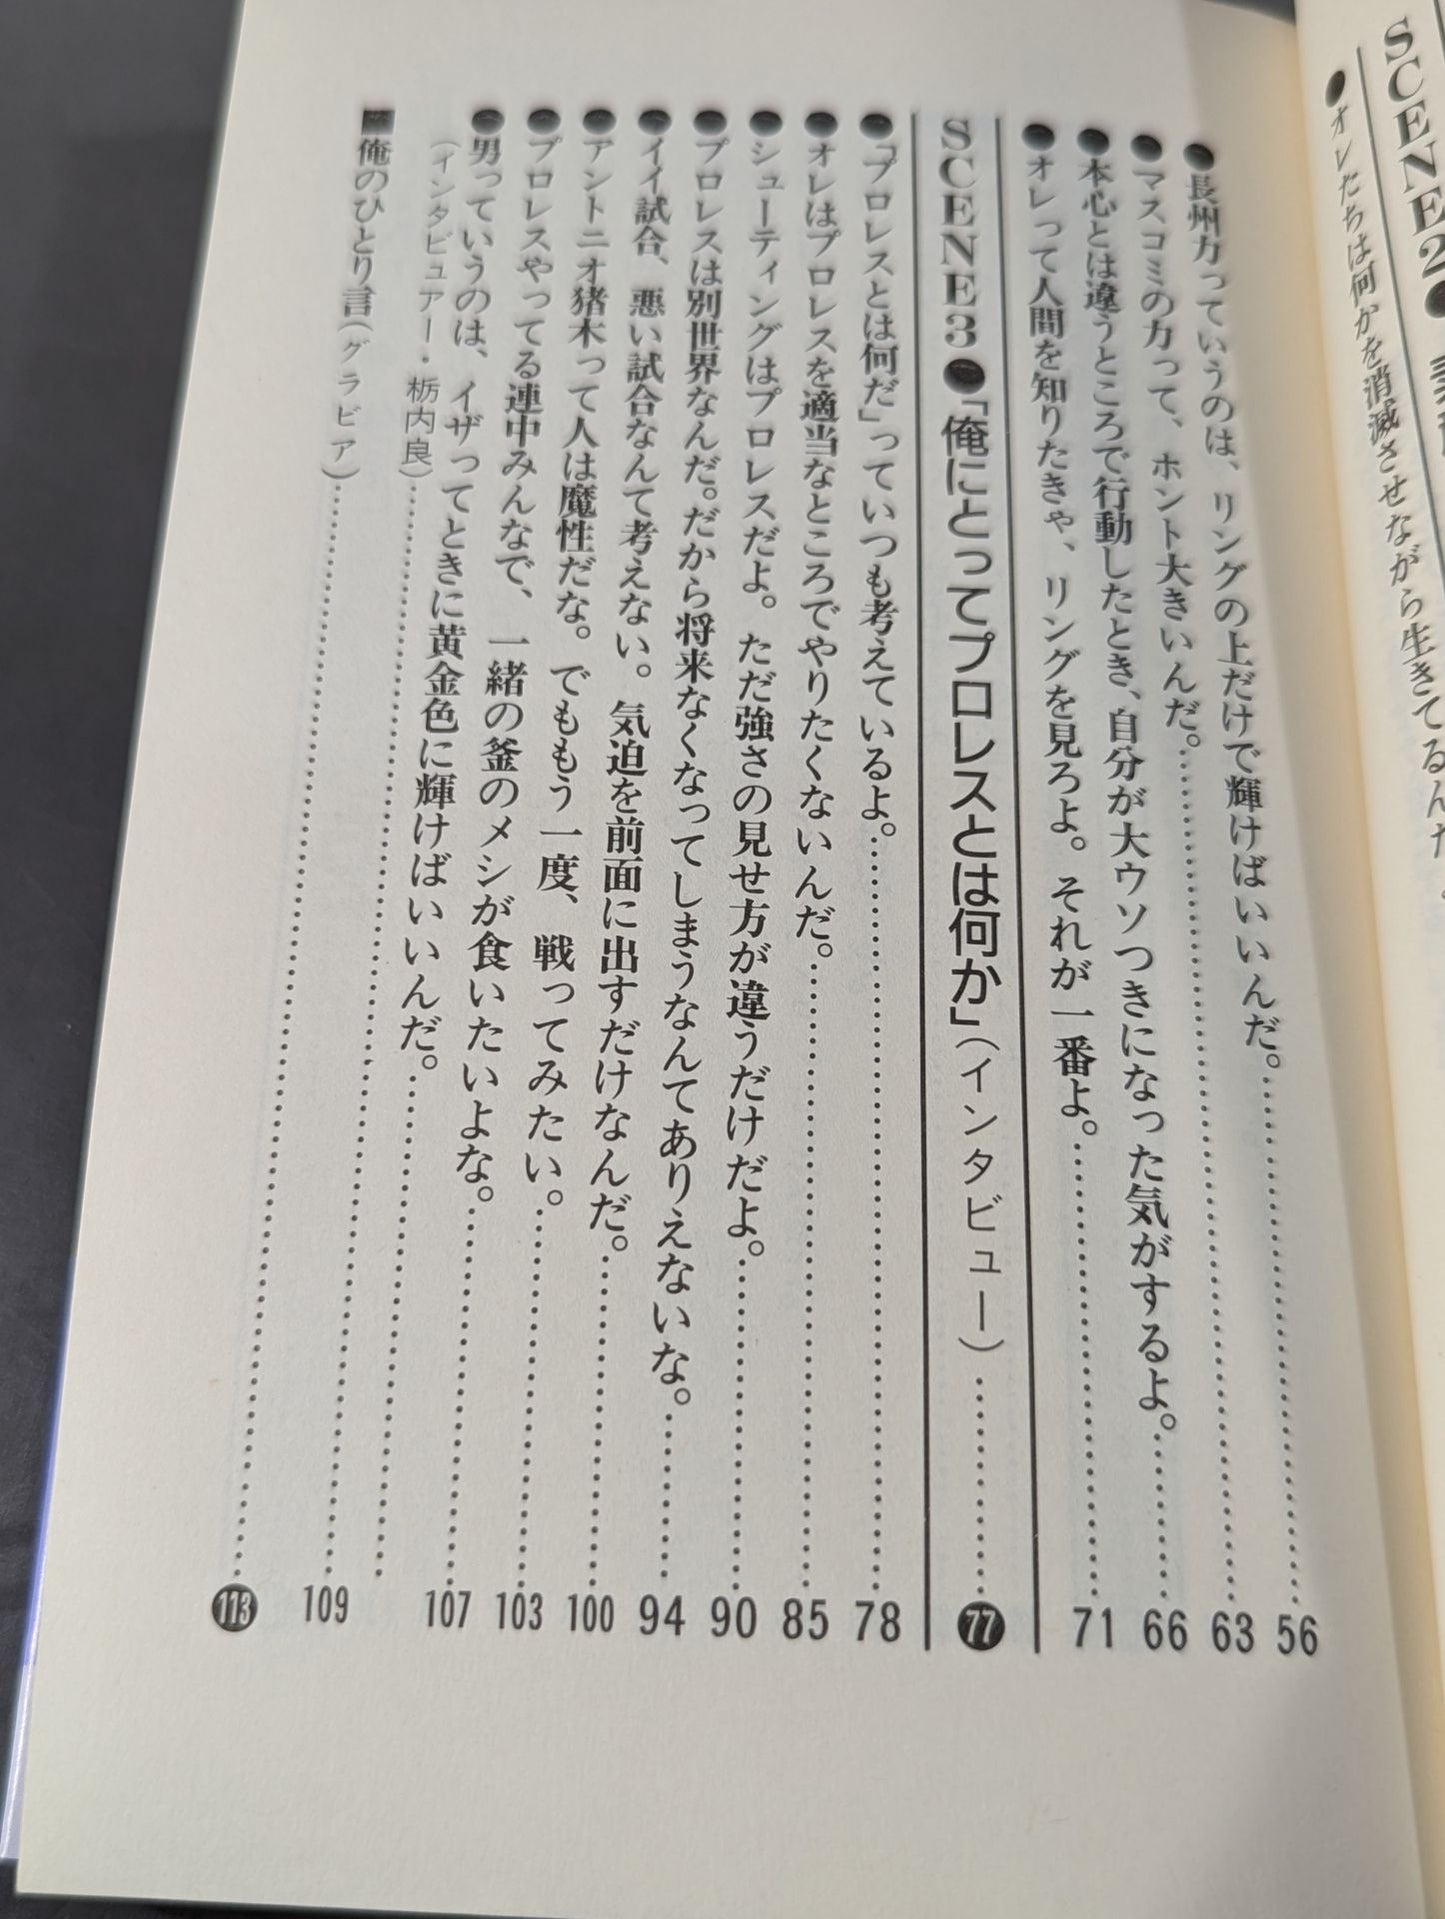 SCENE2●
●オレたちは何かを消滅させながら生きてるんだ
●長州力っていうのは、リングの上だけで輝けばいいんだ。…… 56
●マスコミの力って、ホント大きいんだ。…… 63
●本心とは違うところで行動したとき、自分が大ウソつきになった気がするよ。…… 66
●オレって人間を知りたきゃ、リングを見ろよ。それが一番よ。…… 71
SCENE3●「俺にとってプロレスとは何か」(インタビュー)…… 77
●「プロレスとは何だ」っていつも考えているよ。…… 78
●オレはプロレスを適当なところでやりたくないんだ。…… 85
●シューティングはプロレスだよ。ただ強さの見せ方が違うだけだよ。…… 90
●プロレスは別世界なんだ。だから将来なくなってしまうなんてありえないな。…… 94
●イイ試合、悪い試合なんて考えない。気迫を前面に出すだけなんだ。…… 100
●アントニオ猪木って人は魔性だな。でももう一度、戦ってみたい。…… 103
●プロレスやってる連中みんなで、一緒の釜のメシが食いたいよな。…… 107
●男っていうのは、イザってときに黄金色に輝けばいいんだ。…… 109
(インタビュアー・栃内良)……
■俺のひとり言(グラビア)…… 113